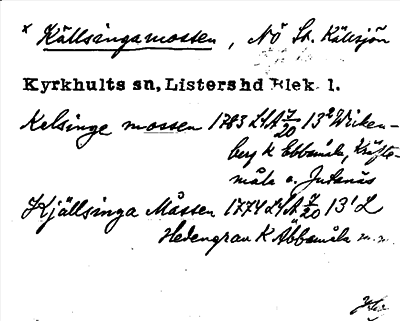 * Källsingamossen, NÖ St. Källsjön
Kyrkhults sn, Listers hd Blek. l.
Kelsinge mossen 1783 LSA 7/20 13² Wirken-
berg K Ebbemåla, Kräfte-
måla o. Julenäs
Kjällsinga Måssen 1774 LSA 7/20 13¹ L
Hedengran K Abbemåla m. m.